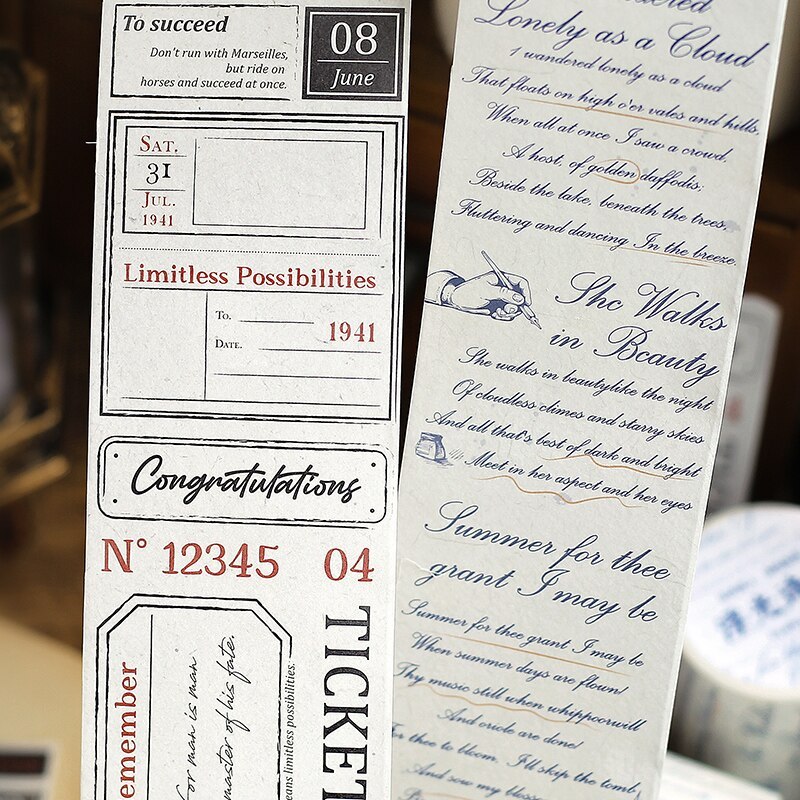 To succeed
Don't run with Marseilles,
but ride on
horses and succeed at once.
08
June
SAT.
31
JUL.
1941
Limitless Possibilities
TO.
DATE.
1941
Congratulations
N° 12345 04
TICKET
emember
for man is man
master of his fate.
eans limitless possibilities.
Lonely as a Cloud
I wandered lonely as a cloud
That floats on high o'er vales and hills,
When all at once I saw a crowd,
A host, of golden daffodis;
Beside the lake, beneath the trees,
Fluttering and dancing In the breeze.
She Walks
in Beauty
She walks in beautylike the night
Of cloudless climes and starry skies
And all that's best of dark and bright
Meet in her aspect and her eyes
Summer for thee
grant I may be
Summer for thee grant I may be
When summer days are flown!
Thy music still when whippoorwill
And oriole are done!
For thee to bloom, I'll skip the tomb
And sow my blosso